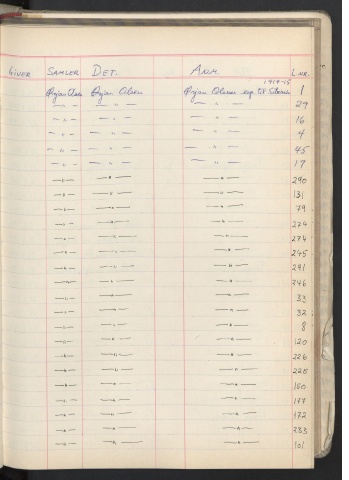 GIVER SAMLER DET. ANM. L.NR.
1914-15
Ørjan Olsen Ørjan Olsen Ørjan Olsens exp. til Sibirien 1
—"— —"— —"— 29
—"— —"— —"— 16
—"— —"— —"— 4
—"— —"— —"— 45
—"— —"— —"— 17
—"— —"— —"— 290
—"— —"— —"— 131
—"— —"— —"— 79
—"— —"— —"— 274
—"— —"— —"— 274
—"— —"— —"— 245
—"— —"— —"— 291
—"— —"— —"— 246
—"— —"— —"— 33
—"— —"— —"— 32
—"— —"— —"— 8
—"— —"— —"— 120
—"— —"— —"— 226
—"— —"— —"— 228
—"— —"— —"— 160
—"— —"— —"— 177
—"— —"— —"— 172
—"— —"— —"— 233
—"— —"— —"— 101